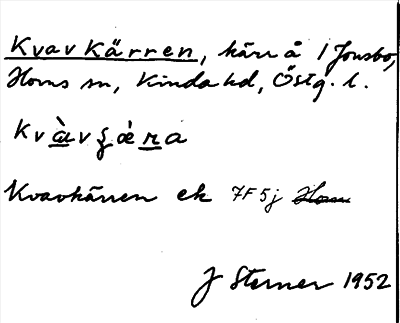 Kvavkärren, kärr å 1 Jonsbo,
Horns sn, Kinda hd, Östg. l.
Kvàvʒæ̀ra
Kvavkärren ek 7F5j Horn
J Sterner 1952